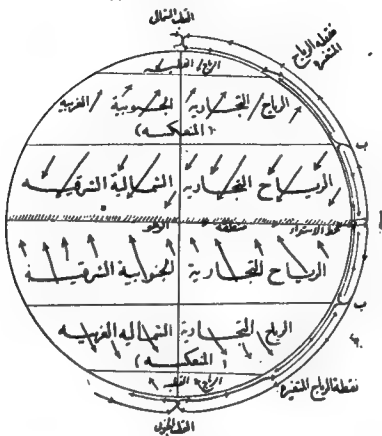 القطب الشمالى
نقطة الرياح
المتغيرة
الرياح القطبية
الرياح التجارية الجنوبية الغربية
(المنعكسة)
ب
الرياح التجارية الشمالية الشرقيـــة
أ
خط الاستواء منطقة الرهو
الرياح التجارية الجنوبية الشرقيـــة
ب
الرياح التجارية الشماليه الغربيه
(المنعكسة)
الرياح القطبيه
نقطة الرياح المتغيرة
القطب الجنوبى